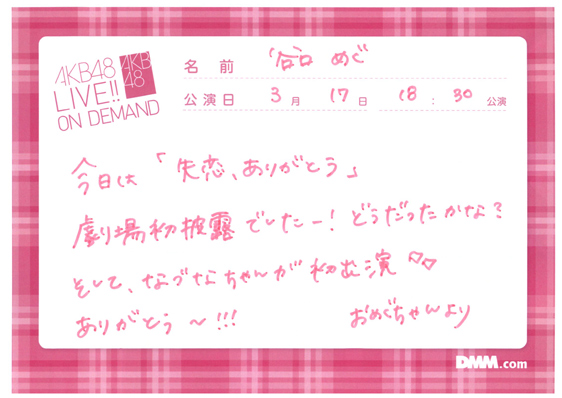 AKB48
LIVE!!
ON DEMAND
AKB
48
名前 谷口 めぐ
公演日 3月 17日 18:30 公演
今日は「失恋、ありがとう」
劇場初披露でしたー!どうだったかな?
そして、なづなちゃんが初出演♡♡
ありがとう〜!!!
おめぐちゃんより
DMM.com